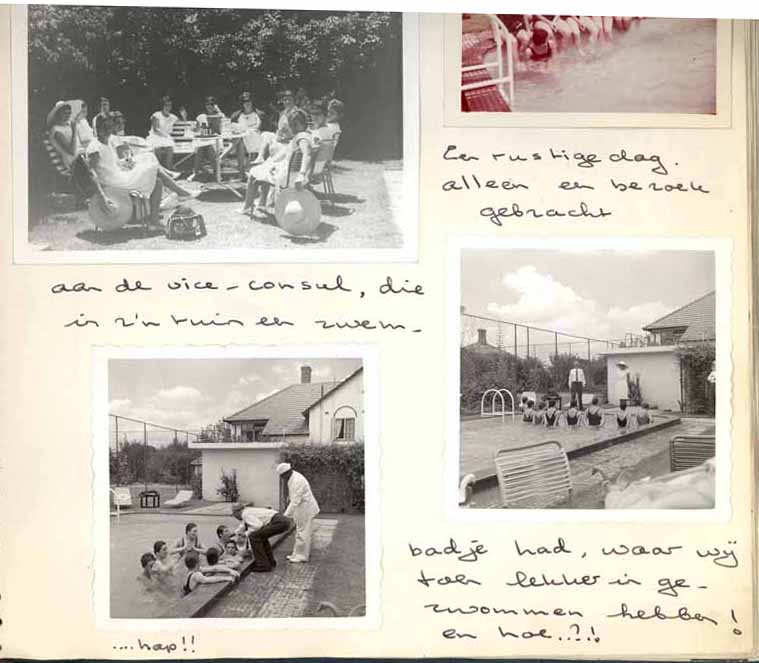 Een rustige dag.
alleen een bezoek
gebracht
aan de vice-consul, die
in z'n tuin een zwem-
badje had, waar wij
toen lekker in ge-
zwommen hebben!
en hoe..?!
....hap!!